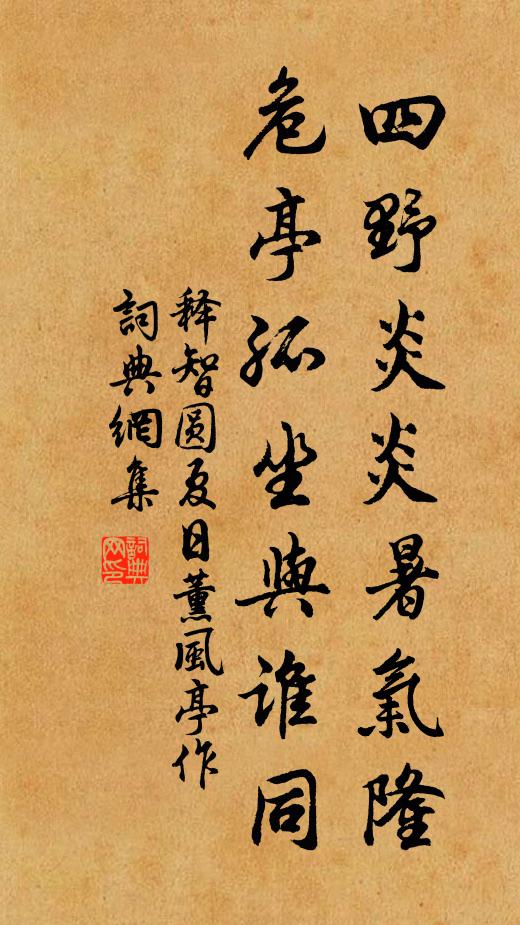 四野炎炎暑氣隆
危亭孤坐與谁同
释智圆夏日薰风亭作
詞典網集
詞典网印